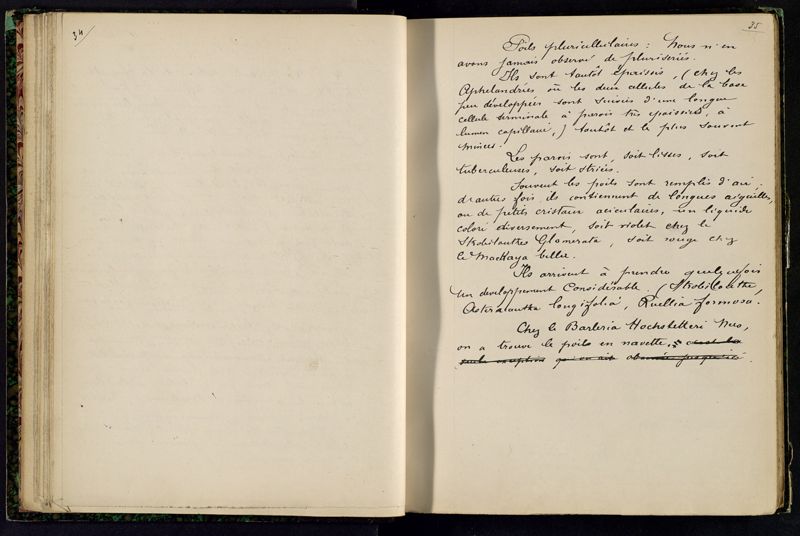 34
35
Poils pluricellulaires : Nous n'en
avons jamais observé de pluriseriés.
Ils sont tantôt épaissis, (chez les
Aphelandriés où les deux cellules de la base
peu développées sont suivies d'une longue
cellule terminale à parois très épaissies, à
lumen capillaire,) tantôt et le plus souvent
minces.
Les parois sont, soit lisses, soit
tuberculeuses, soit striées.
Souvent les poils sont remplis d'air;
d'autres fois, ils contiennent de longues aiguilles,
ou de petits cristaux aciculaires, un liquide
coloré diversement, soit violet chez le
Strobilanthes Glomerata, soit rouge chez
le Mackaya bella.
Ils arrivent à prendre quelquefois
un développement considérable. (Strobilanthe,
Asteracantha longifolia, Ruellia formosa.
Chez le Barleria Hochstetteri Nees,
on a trouvé le poils en navette, c'est la
seule exception qu'on ait observée jusqu'ici